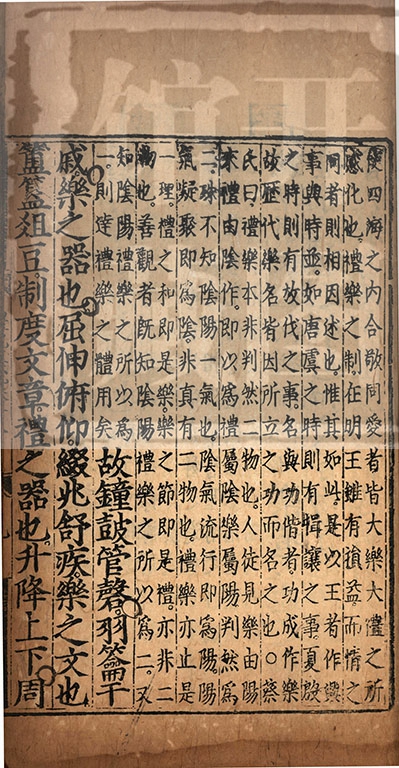 使四海之內合敬同愛者皆大樂大禮之所
感化也禮樂之制在明王雖有損益而情之
同者則相因述也惟其如此是以王者作興
事與時並如唐虞之時則有揖讓之事夏殷
之時則有放伐之事名與功偕者功成作樂
故歷代樂名皆因所立之功而名之也○蔡
氏曰禮樂本非判然二物也人徒見樂由陽
來禮由陰作即以爲禮屬陰樂屬陽判然爲
二殊不知陰陽一氣也陰氣流行即爲陽陽
氣凝聚即爲陰非真有二物也禮樂亦止是
一理禮之和即是樂樂之節即是禮亦非二
物也善觀者既知陰陽禮樂之所以爲二又
知陰陽禮樂之所以爲
一則達禮樂之體用矣
故鐘鼓管磬羽籥干
戚樂之器也屈伸俯仰綴兆舒疾樂之文也
簠簋俎豆制度文章禮之器也升降上下周